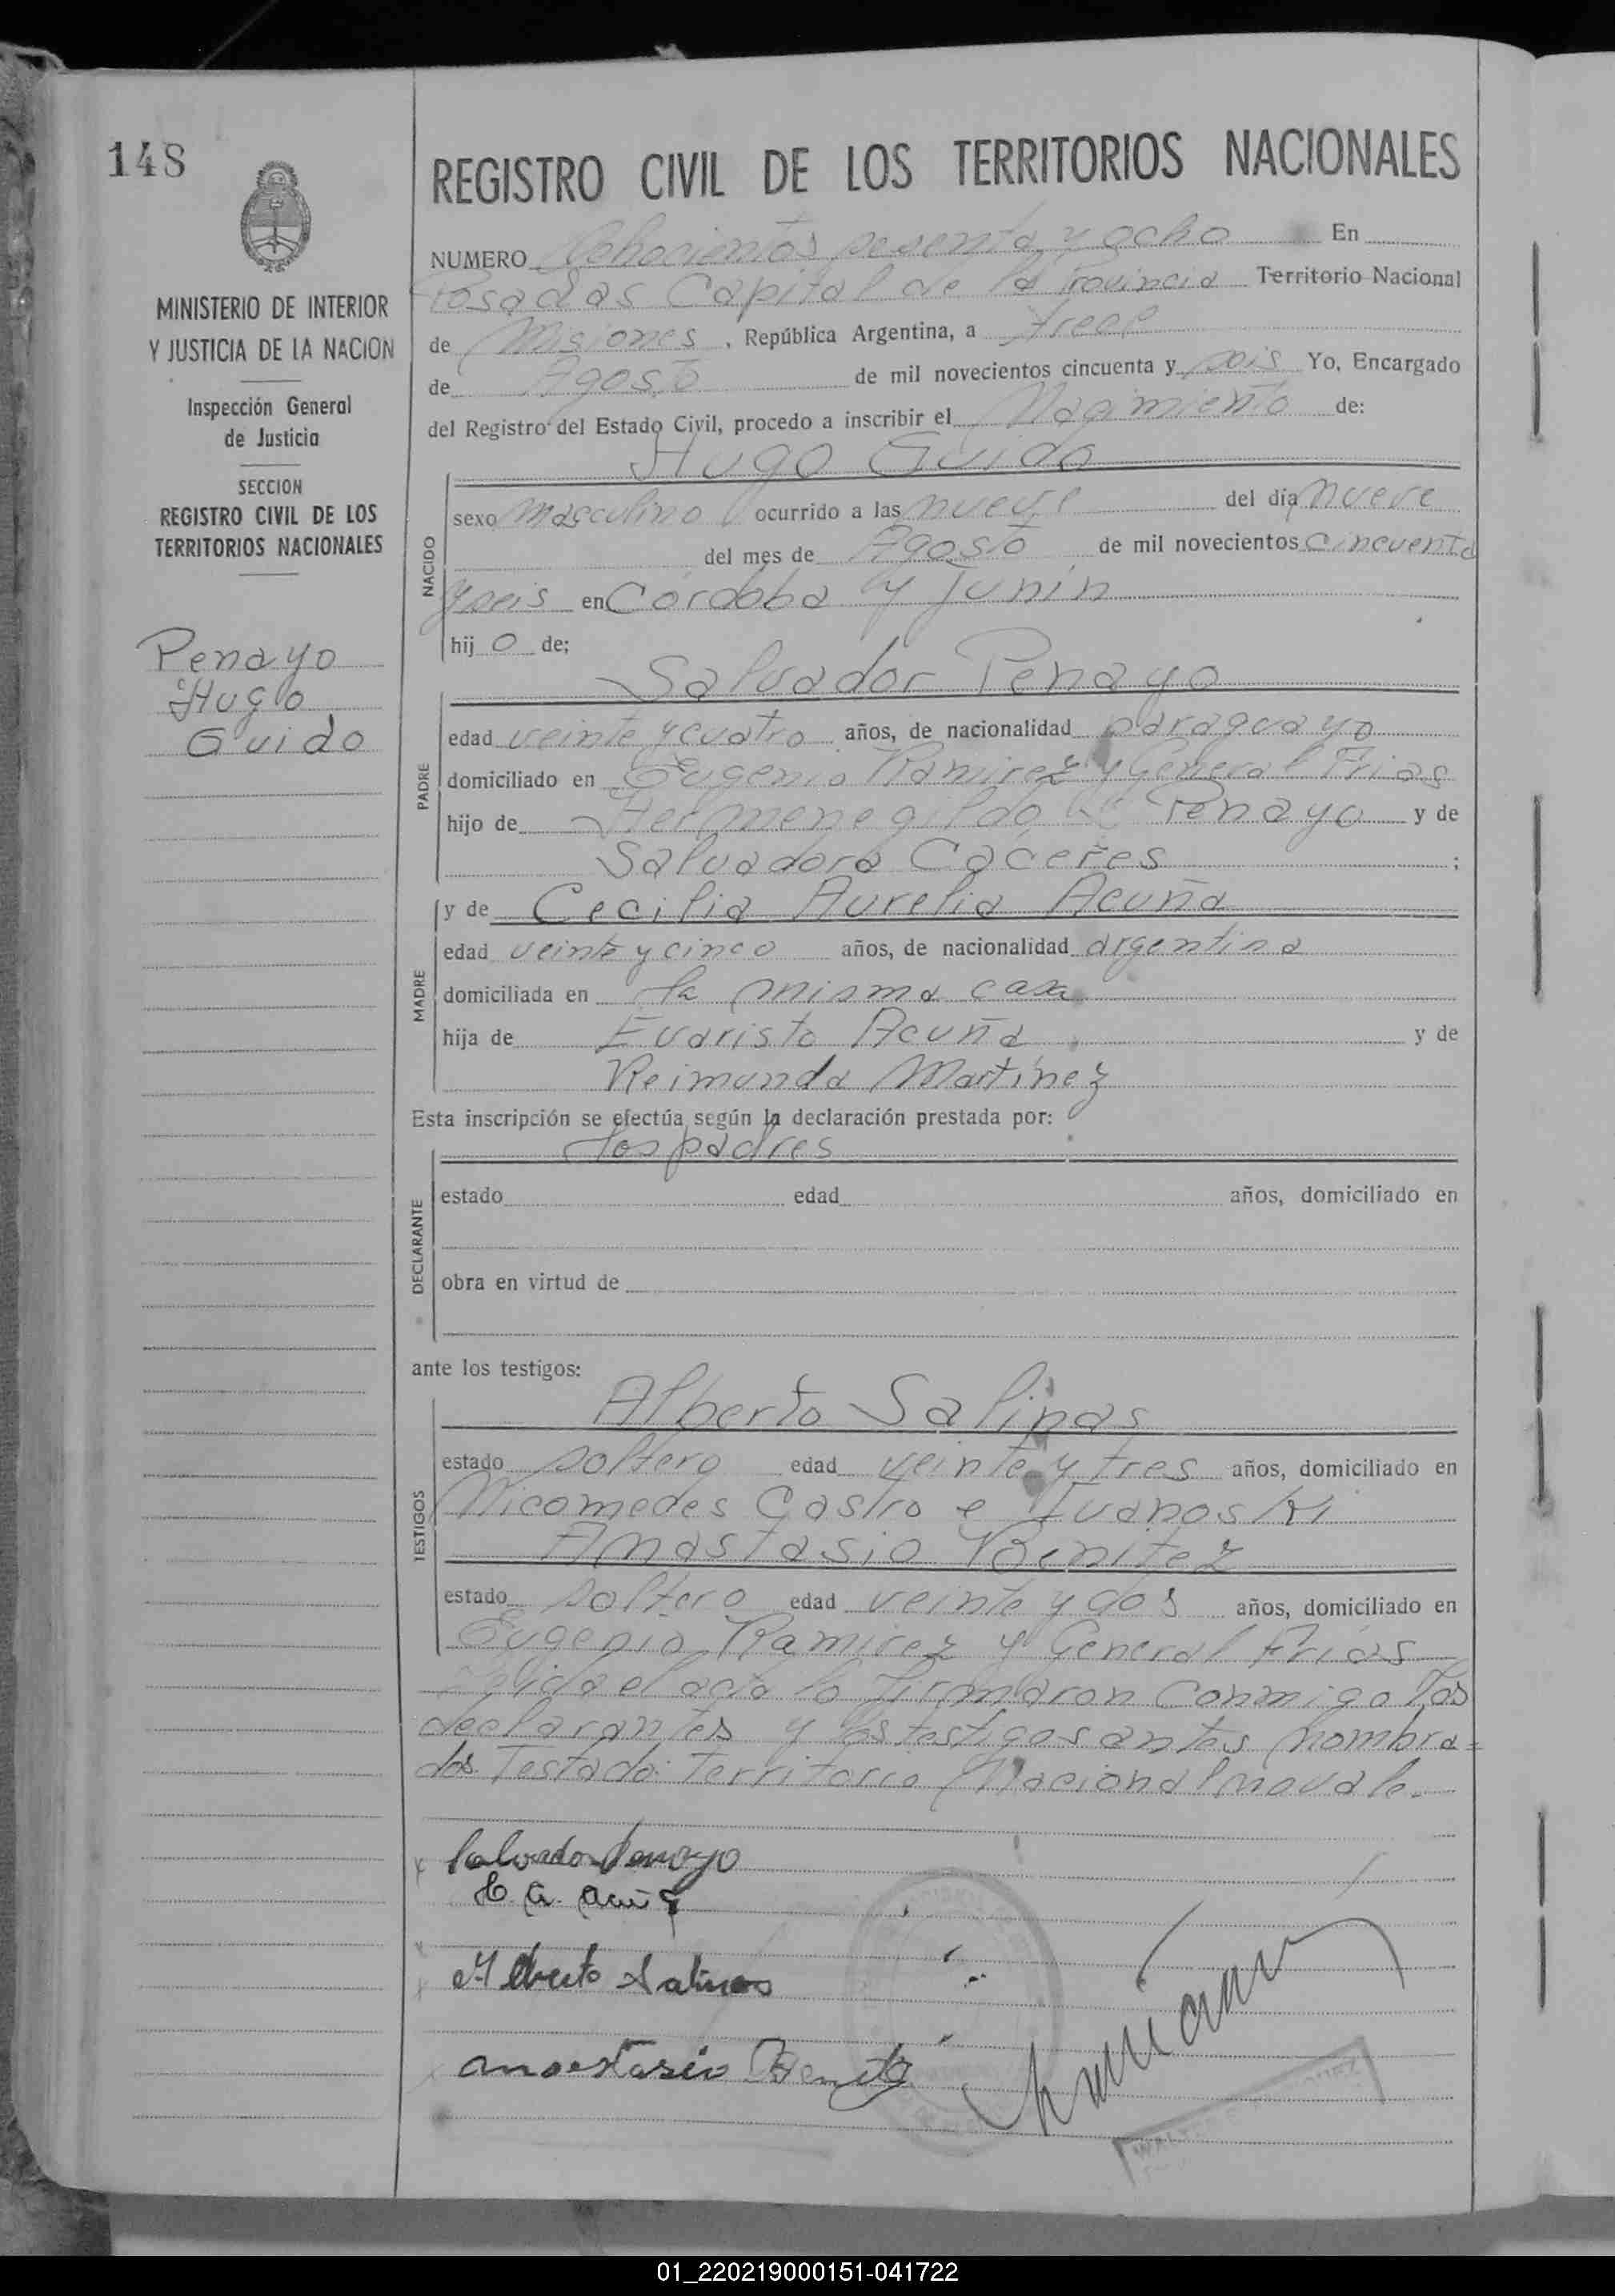 148
REGISTRO CIVIL DE LOS TERRITORIOS NACIONALES
MINISTERIO DE INTERIOR
Y JUSTICIA DE LA NACION
Inspección General
de Justicia
SECCION
REGISTRO CIVIL DE LOS
TERRITORIOS NACIONALES
Penayo
Hugo
Guido
NUMERO Ochocientos sesenta y ocho En
Posadas Capital de la Provincia Territorio Nacional
de Misiones, República Argentina, a trece
de Agosto de mil novecientos cincuenta y seis Yo, Encargado
del Registro del Estado Civil, procedo a inscribir el Nacimiento de:
Hugo Guido
NACIDO
sexo masculino ocurrido a las nueve del día nueve
del mes de Agosto de mil novecientos cincuenta
y seis en Córdoba y Junín
hij o de;
Salvador Penayo
PADRE
edad veinte y cuatro años, de nacionalidad paraguayo
domiciliado en Eugenio Ramirez y General Frias
hijo de Hermenegildo Penayo y de
Salvadora Caceres ;
y de Cecilia Aurelia Acuña
MADRE
edad veinte y cinco años, de nacionalidad argentina
domiciliada en la misma casa
hija de Evaristo Acuña y de
Reimunda Martínez
Esta inscripción se efectúa según la declaración prestada por:
los padres
DECLARANTE
estado edad años, domiciliado en
obra en virtud de
ante los testigos:
Alberto Salinas
TESTIGOS
estado soltero edad veinte y tres años, domiciliado en
Nicomedes Castro e Ivanoski
Anastasio Benitez
estado soltero edad veinte y dos años, domiciliado en
Eugenio Ramirez y General Frias
Leída el acta la firmaron conmigo los
declarantes y los testigos antes nombra=
dos. Testado: Territorio Nacional no vale.
Salvador Penayo
C. A. Acuña
Alberto Salinas
Anastasio Benitez
01_220219000151-041722